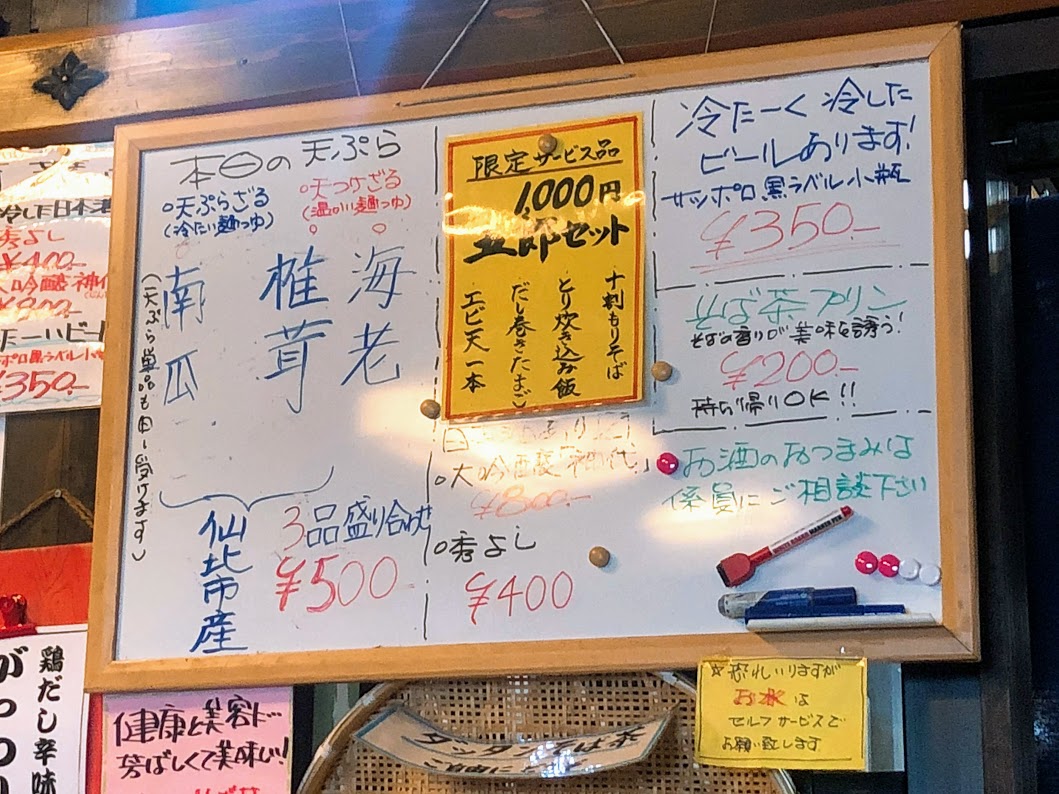 本日の天ぷら
天ぷらざる
(冷たい麺つゆ)
天つけざる
(温かい麺つゆ)
海老
椎茸
南瓜
(天ぷら単品も申し受けます)
仙北市産
3品盛り合わせ
¥500
限定サービス品
1,000円
五郎セット
十割もりそば
とり炊き込み飯
だし巻きたまご
エビ天一本
大吟醸「神代」
¥800-
秀よし
¥400
冷たーく冷した
ビールあります!
サッポロ黒ラベル小瓶
¥350-
そば茶プリン
そばの香りが美味を誘う!
¥200-
持ち帰りOK!!
お酒のおつまみは
係員にご相談下さい
WHITE BOARD MARKER PEN
冷した日本酒
秀よし
¥400-
大吟醸 神代
¥800-
サッポロ黒ラベル小瓶
¥350-
鶏だし辛味
健康と美容に
芳ばしくて美味しい!
ダッタンそば茶
☆恐れいりますが
お水は
セルフサービスで
お願い致します